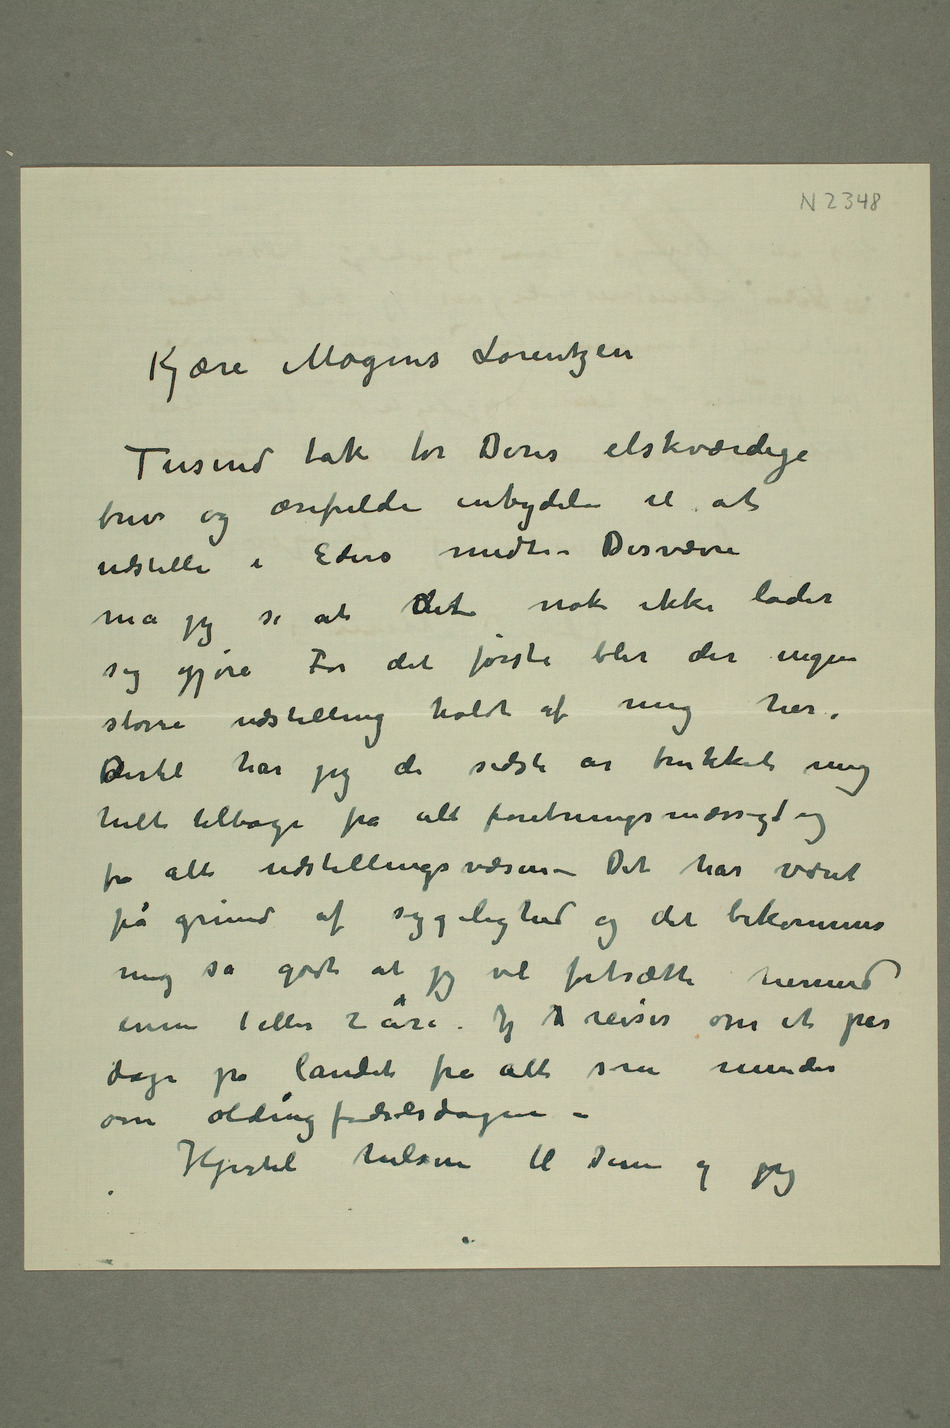 N 2348
Kjære Mogens Lorentzen
Tusend tak for Deres elskværdige
brev og ærefulde inbydelse til at
udstille i Eders midte – Desværre
må jeg se at det nok ikke lader
sig gjøre For det første blir der ingen
større udstilling holdt af mig her.
Dertil har jeg de sidste år trukket mig
helt tilbage fra alt foretningsmæssigt og
fra alt udstillingsvæsen – Det har været
på grund af sygelighed og det bekommer
mig så godt at jeg vil fortsætte hermed
ennu 1 eller 2 år. Jeg reiser om et par
dage på landet fra alt som minder
om oldingfødselsdagen –
Hjertel hilsen til Dem og jeg